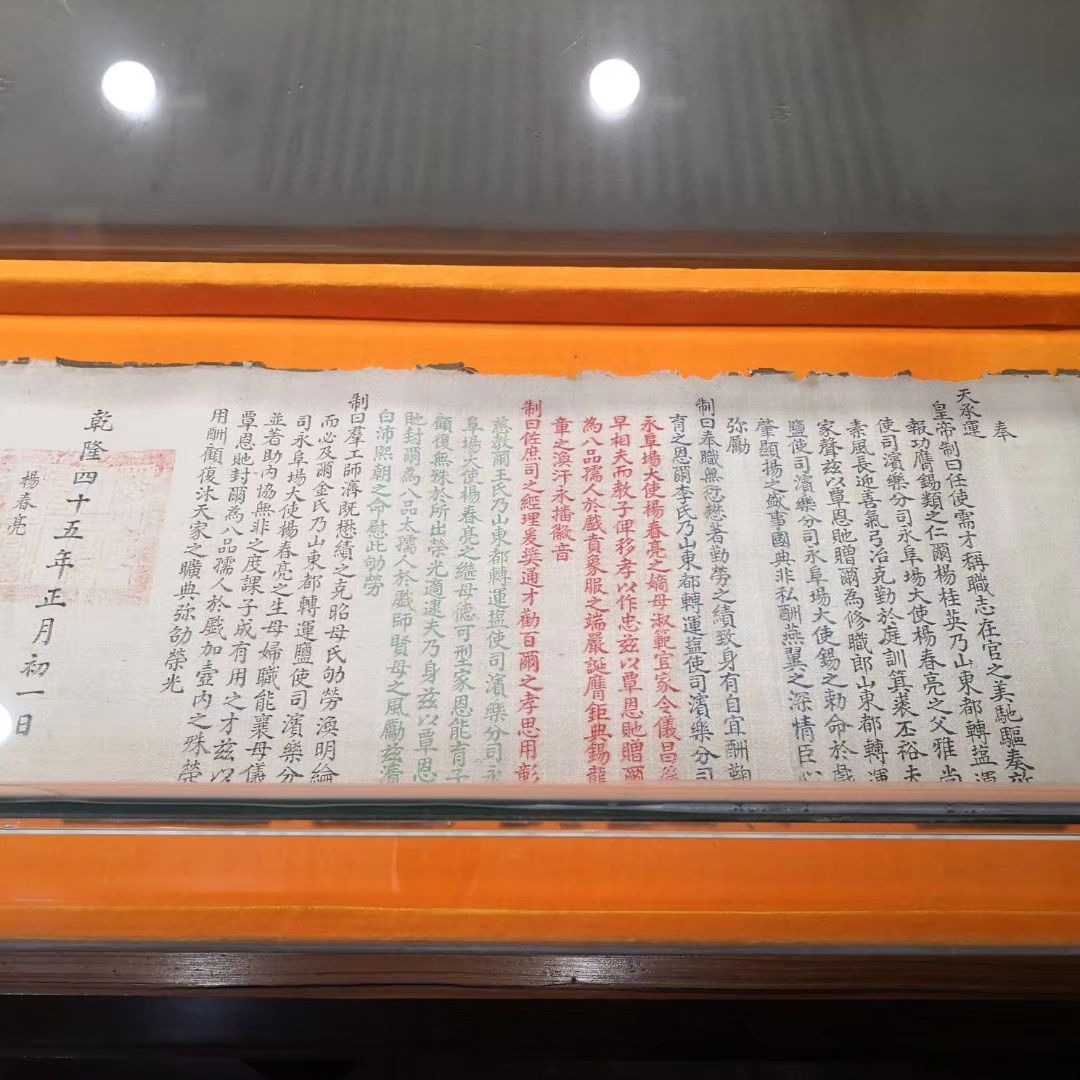 奉
天承運
皇帝制曰任使需才稱職志在官之美馳驅奏
報功膺錫類之仁爾楊桂英乃山東都轉塩運
使司濱樂分司永阜場大使楊春亮之父雅尚
素風長迎善氣弓冶克勤於庭訓箕裘丕裕夫
家聲兹以覃恩貤贈爾為修職郎山東都轉運
鹽使司濱樂分司永阜場大使錫之勅命於戲
肇顯揚之盛事國典非私酬燕翼之深情臣心
弥勵
制曰奉職無愆懋著勤勞之績致身有自宜酬鞠
育之恩爾李氏乃山東都轉運塩使司濱樂分司
永阜場大使楊春亮之嫡母淑範宜家令儀昌後
早相夫而教子俾移孝以作忠兹以覃恩貤贈爾
為八品孺人於戲賁象服之端嚴誕膺鉅典錫龍
章之渙汗永播徽音
制曰佐庶司之經理爰奨通才勸百爾之孝思用彰
慈教爾王氏乃山東都轉運塩使司濱樂分司永
阜場大使楊春亮之継母德可型家恩能育子
顧復無殊於所出榮光適逮夫乃身兹以覃恩
貤封爾為八品太孺人於戲師賢母之風勵兹清
白沛熙朝之命慰此劬勞
制曰羣工師濟既懋績之克昭母氏劬勞渙明綸
而必及爾金氏乃山東都轉運鹽使司濱樂分
司永阜場大使楊春亮之生母婦職能襄母儀
並著助内協無非之度課子成有用之才兹以
覃恩貤封爾為八品孺人於戲加壼内之殊榮
用酬顧復沐天家之曠典弥劭榮光
乾隆四十五年正月初一日
楊春亮